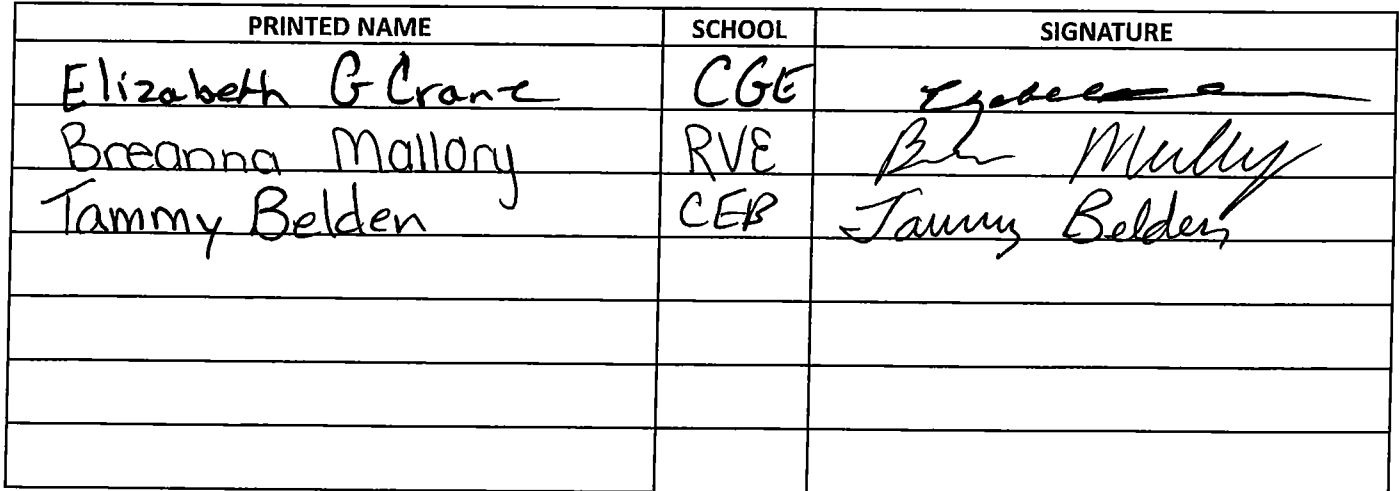 PRINTED NAME SCHOOL SIGNATURE
Elizabeth G Crane CGE
Breanna Mallory RVE
Tammy Belden CEB Tammy Belden